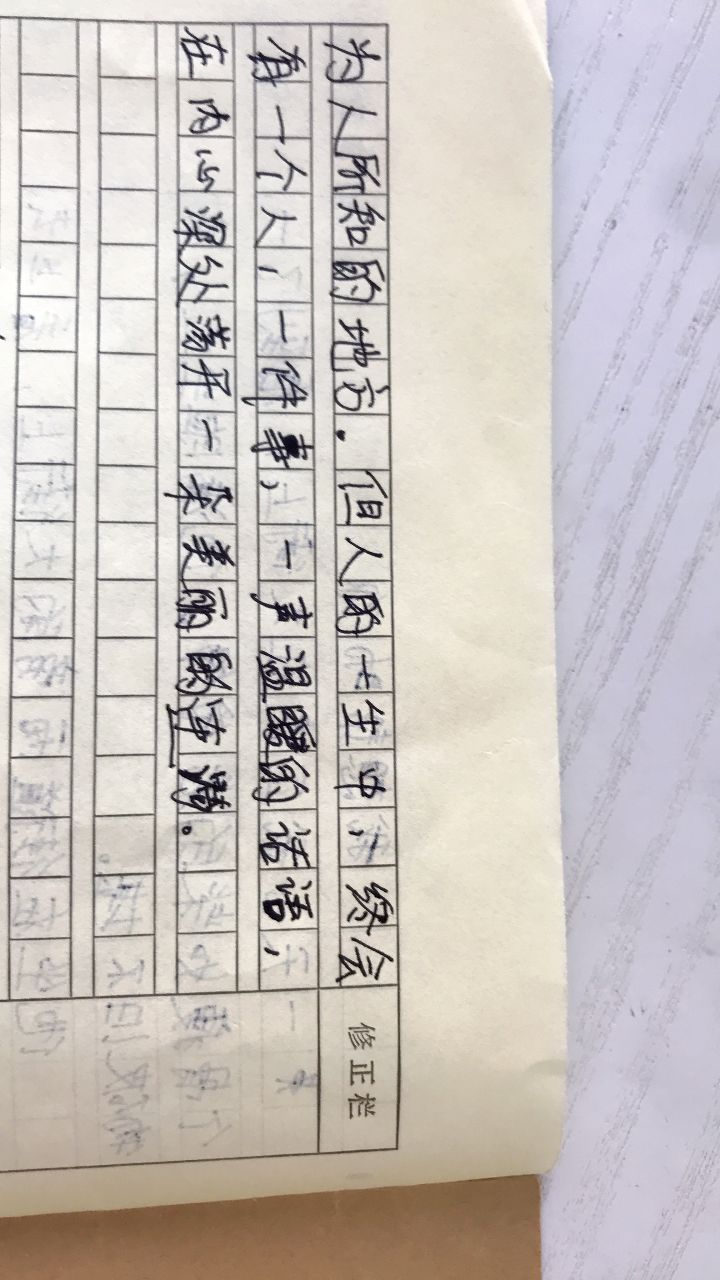 为人所知的地方.但人的一生中,终会
修正栏
有一个人,一件事,一声温暖的话语,
在内心深处荡开一朵美丽的涟漪。